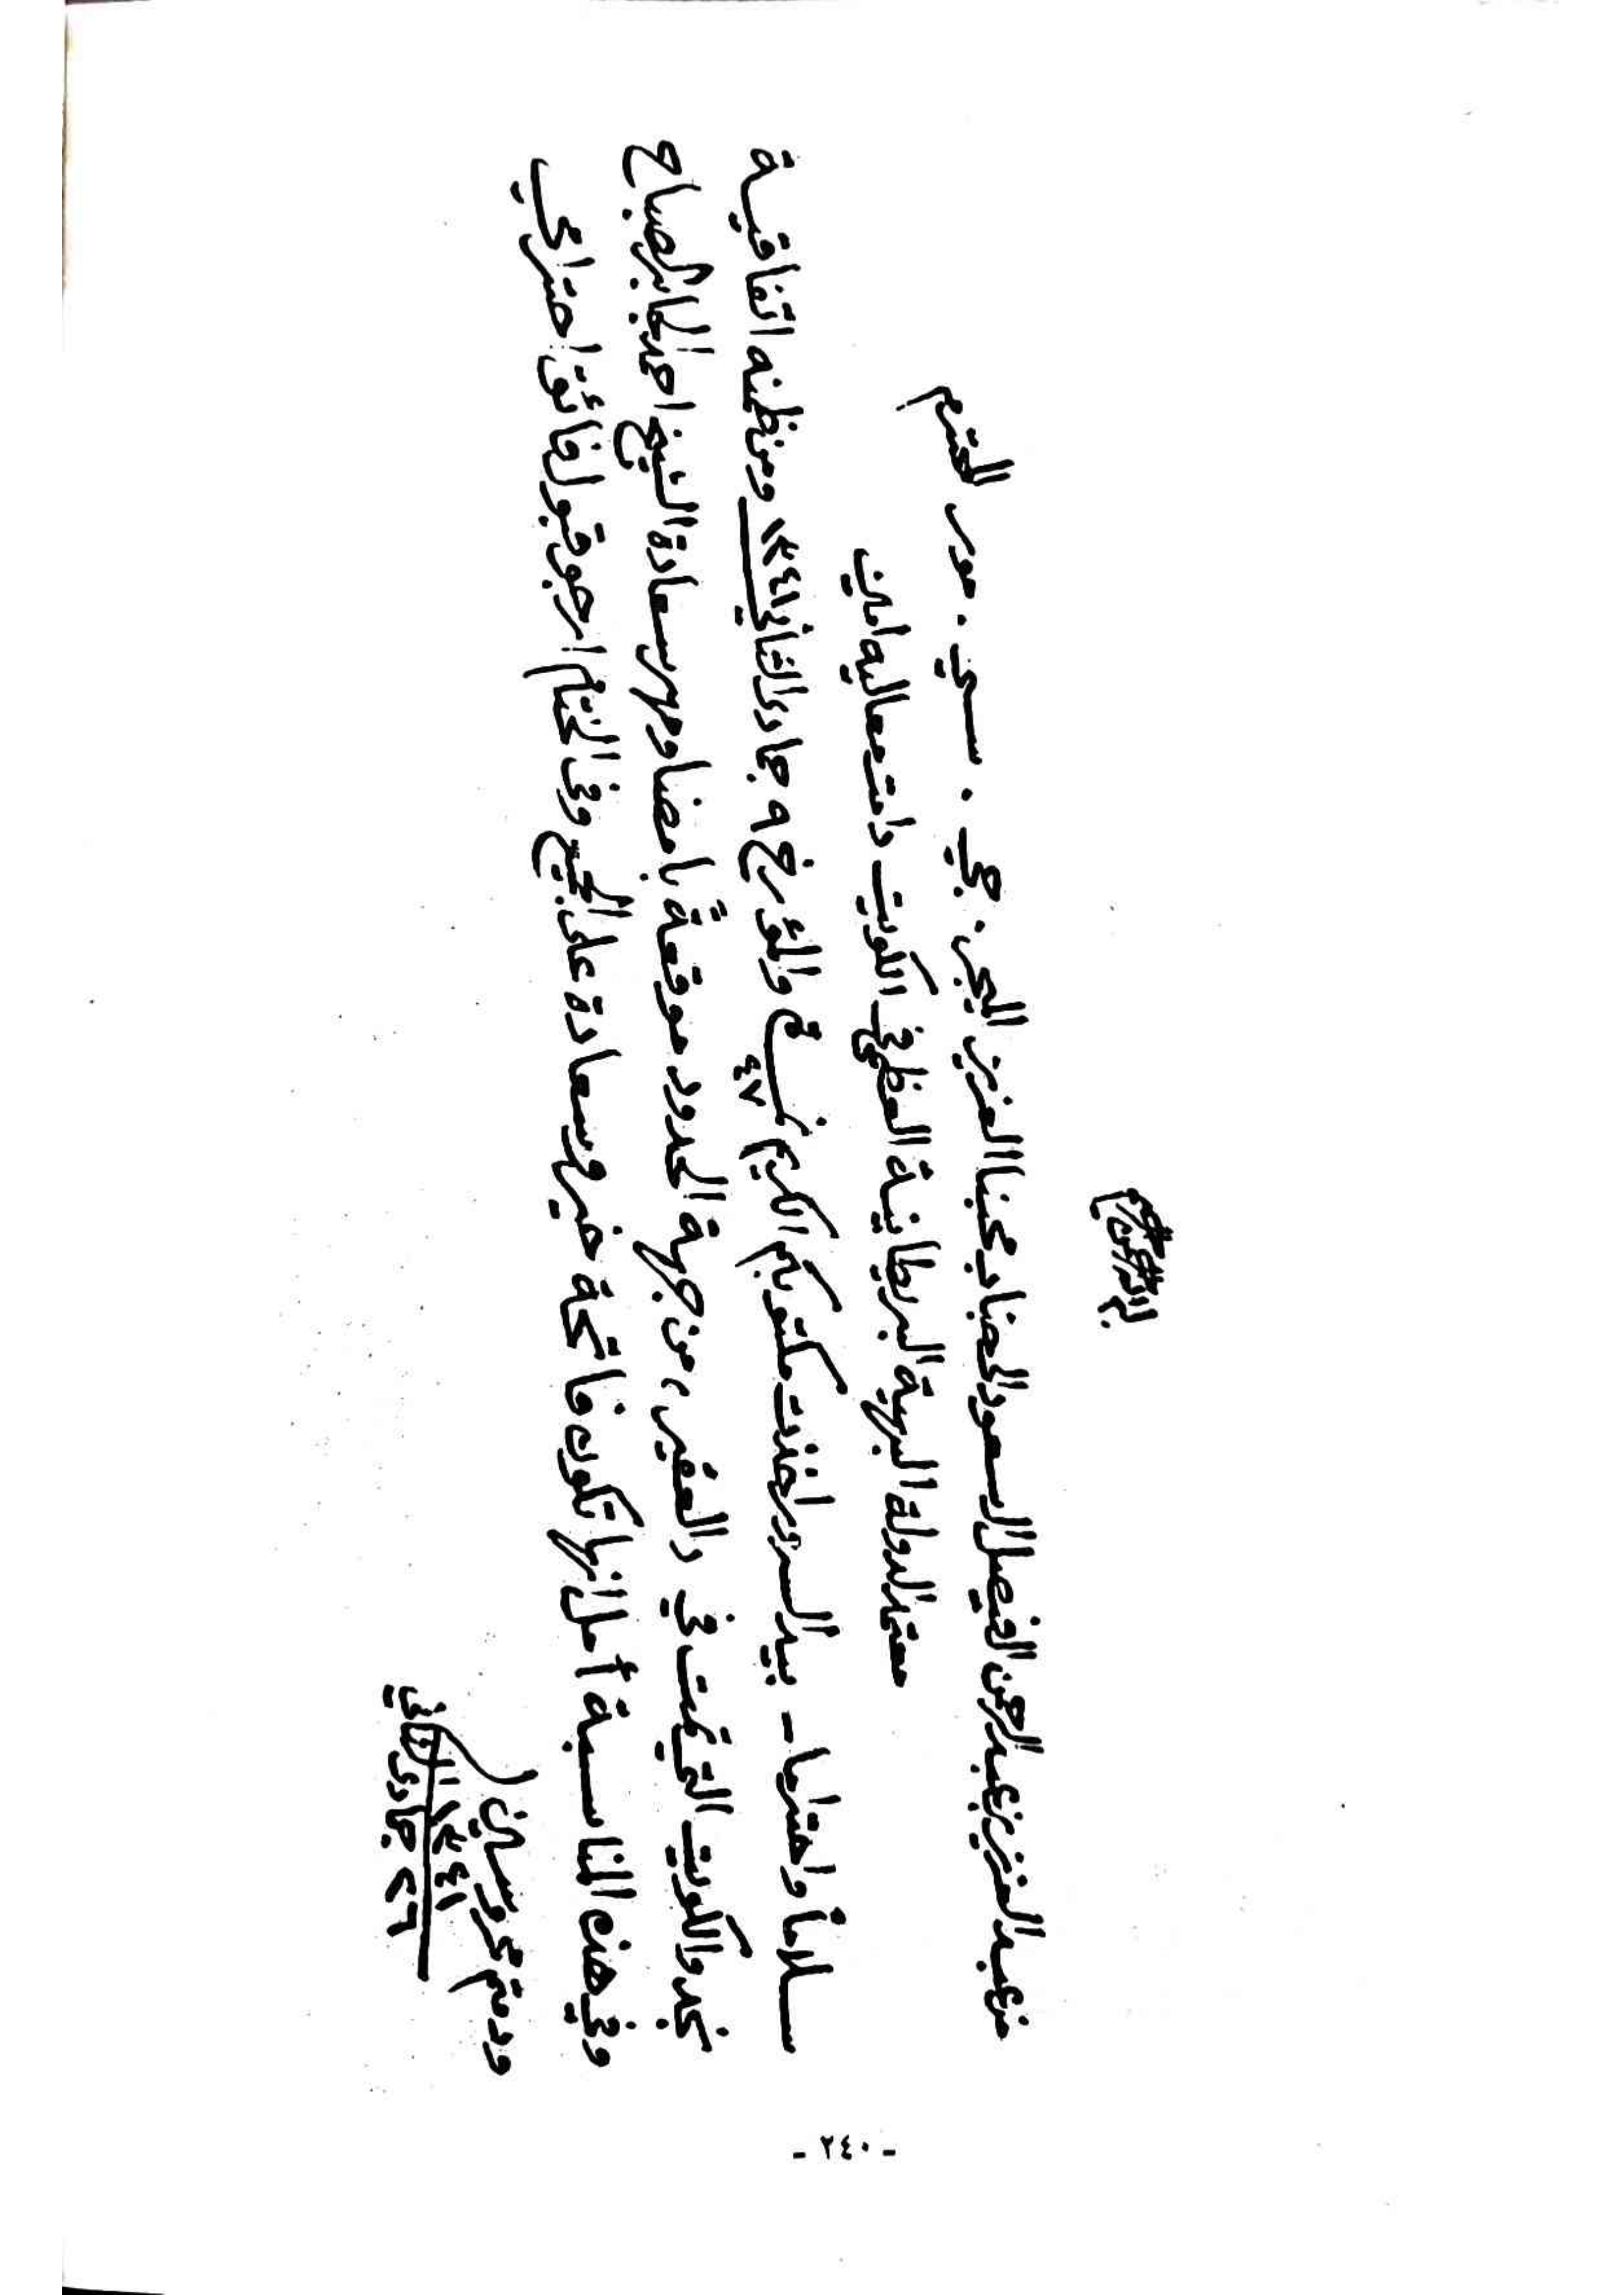 بسم الله الرحمن الرحيم
من عبد العزيز بن عبد الرحمن الفيصل السعود الى جناب محبنا العزيز الميجر . جي . سي . مور المحترم
معتمد الدولة البهية البريطانية العظمى في الكويت دامت معاليه امين
سلاماً واحتراما - بيد السرور اخذت مكتوبكم الكريم نمرة ٤٧ والمؤرخ ٩ جمادى الثاني ١٣٤١ ومن طيه اتفاقية
نجد والكويت التي تمت في العقير ، من جهة الحدود موقعةً بامضاء وعن سعادة الشيخ احمد الجابر الصباح
وفي هذه المناسبة آمل انها تكون فاتحة خير وسعادة على الجميع وفي الختام ارجو قبول فائق احترامي
ودمتم محروسين
٢٦ جمادى الثاني ١٣٤١
- ٢٤٠ -